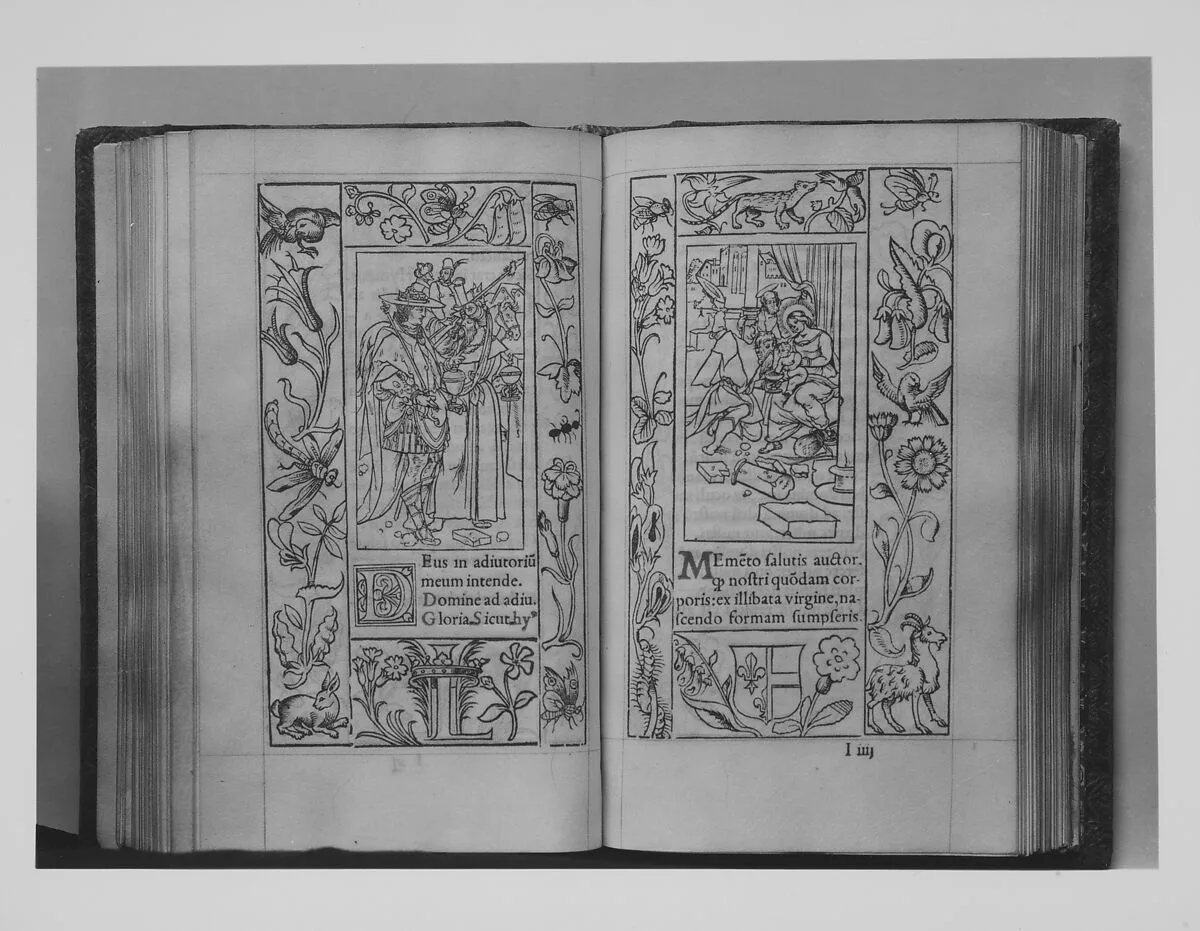 Eus in adiutoriũ
D meum intende.
Domine ad adiu.
Gloria. Sicut. hyꝰ
L
MEmẽto salutis auctor.
ꝙ nostri quõdam cor-
poris: ex illibata virgine, na-
scendo formam sumpseris.
I iiij